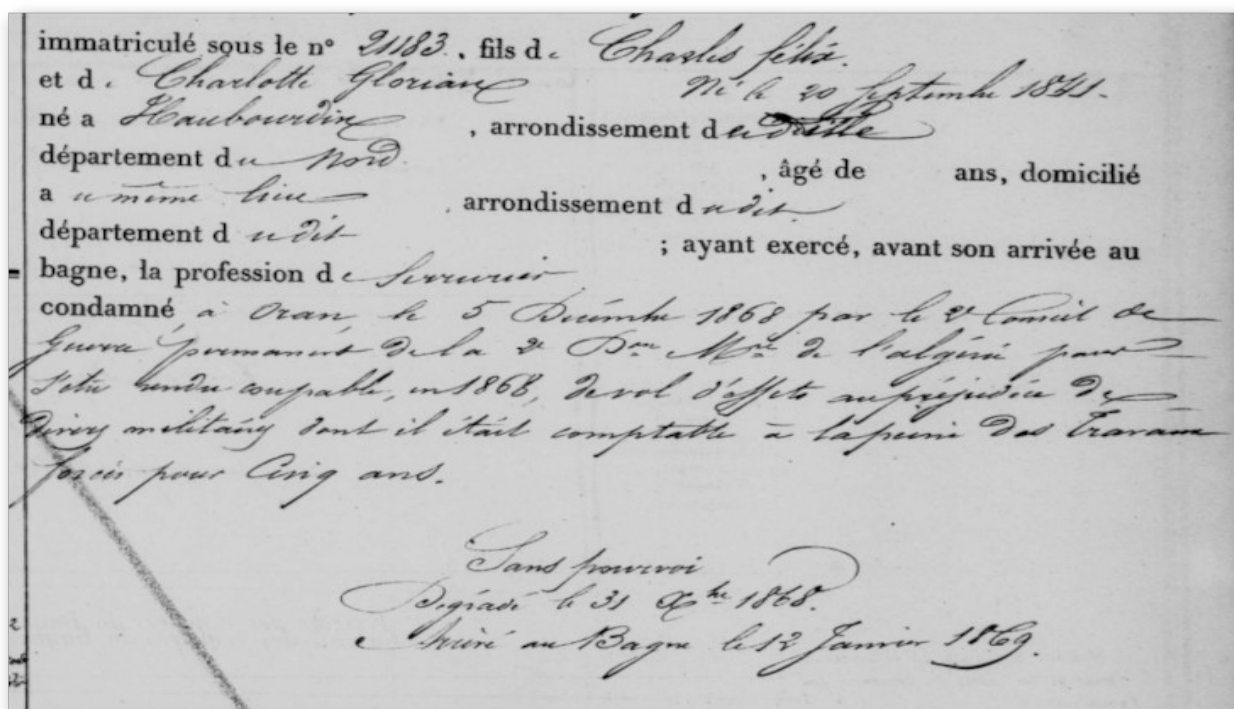 immatriculé sous le n° 21183, fils de Charles félix.
et de Charlotte Glorian Né le 20 Septembre 1841.
né a Haubourdin, arrondissement de Lille
département du Nord, âgé de ans, domicilié
a u même lieu arrondissement d udit
département d udit ; ayant exercé, avant son arrivée au
bagne, la profession de Serrurier
condamné à Oran, le 5 Décembre 1868 par le 2e Conseil de
Guerre permanent de la 2e Don Mre de l'algérie pour
s'être rendu coupable, en 1868, de vol d'effets au préjudice de
divers militaires dont il était comptable à la peine des Travaux
forcés pour Cinq ans.
Sans pourvoi
Dégradé le 31 Xbre 1868.
Arrivé au Bagne le 12 Janvier 1869.